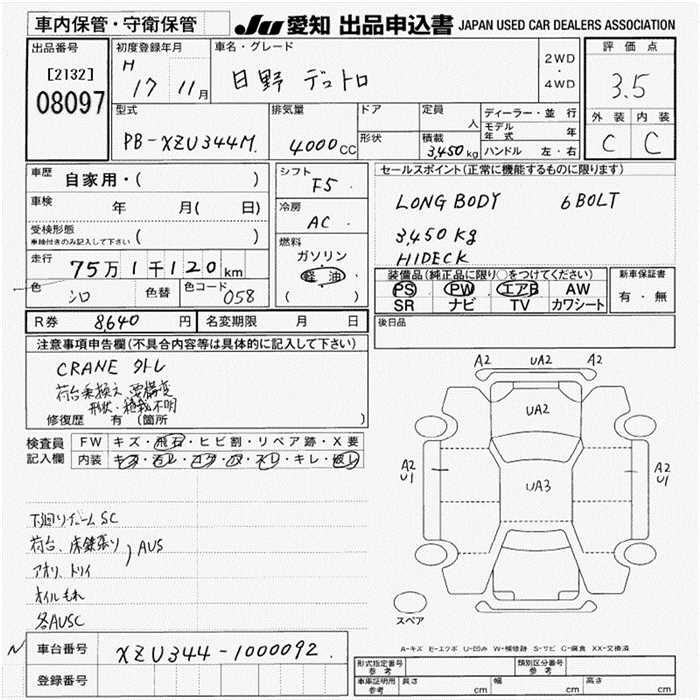 車内保管・守衛保管 JU 愛知 出品申込書 JAPAN USED CAR DEALERS ASSOCIATION
出品番号
[2132]
08097
初度登録年月
H 17 11月
車名・グレード
日野 デュトロ
2WD
・
4WD
評価点
3.5
外装 内装
C C
型式
PB-XZU344M.
排気量
4000cc
ドア
形状
定員
人
積載
3,450kg
ディーラー・並行
モデル年式 年
ハンドル 左・右
車歴
自家用・( )
車検 年 月( 日)
受検形態
車検付きのみ記入して下さい ( )
走行 75万1千120km
色 シロ 色替 色コード 058
シフト
F5
冷房
AC
燃料
ガソリン
軽油
( )
セールスポイント(正常に機能するものに限ります)
LONG BODY 6BOLT
3,450kg
HIDECK
装備品(純正品に限り○をつけてください)
PS PW エアB AW
SR ナビ TV カワシート
新車保証書
有・無
後日品
R券 8640円 名変期限 月 日
注意事項申告欄(不具合内容等は具体的に記入して下さい)
CRANE 外し
荷台乗換え 要構変
形状・積載不明
修復歴 有 (箇所 )
検査員
記入欄
FW キズ・飛石・ヒビ割・リペア跡・X要
内装 キズ・ヨレ・コゲ・穴・スレ・キレ・破レ
下廻りフレームSC
荷台、床鉄張り
アオリ、トリイ ) AUS
オイルもれ
各AUSC
A2 UA2 A2
UA2
A2
U1
UA3
A2
U1
スペア
A-キズ E-エクボ U-凹み W-補修跡 S-サビ C-腐食 XX-交換済
N
車台番号 XZU344-1000092
登録番号
形式指定番号
参考
類別区分番号
参考
車庫証明用
参考
長さ cm 幅 cm 高さ cm